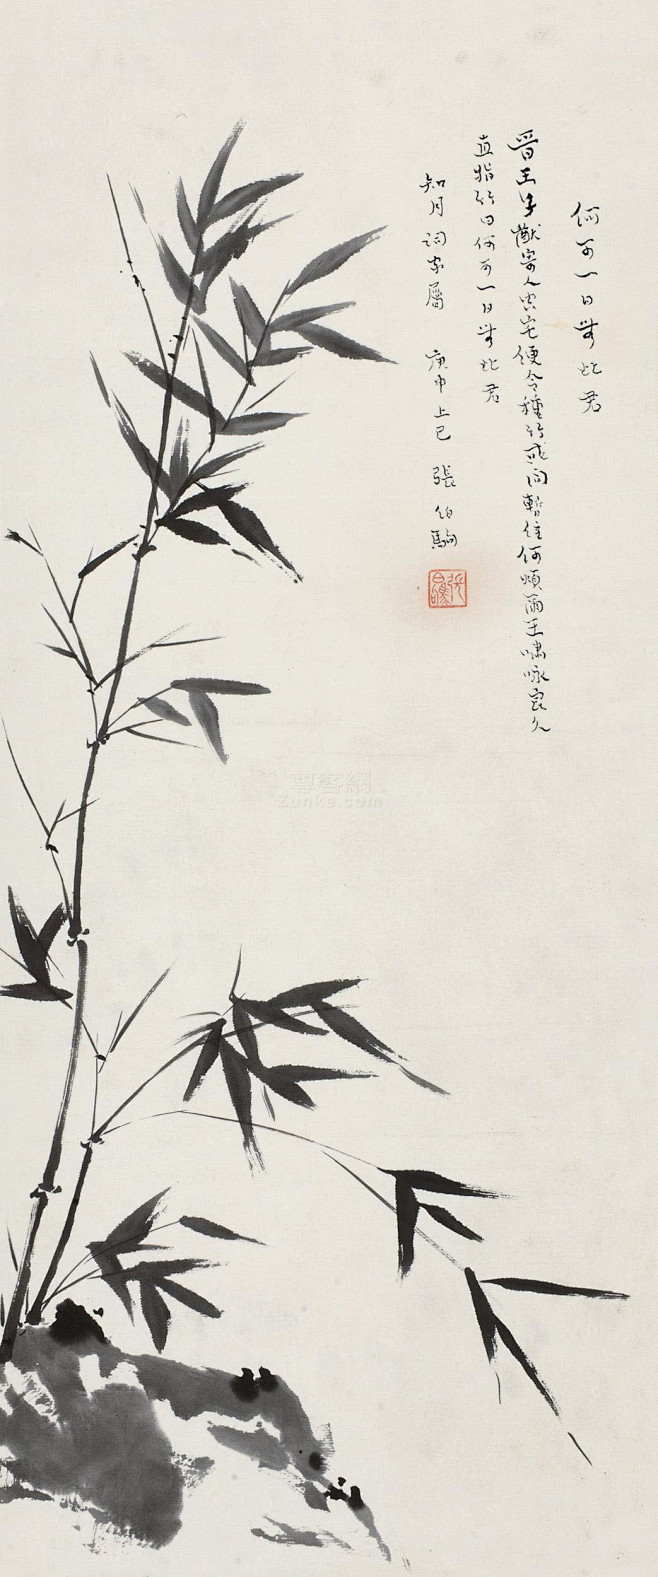 何可一日無此君
晉王子猷寄人空宅便令種竹或問暫住何煩爾王嘯咏良久
直指竹曰何可一日無此君
知月詞家屬 庚申上巳 張伯駒
尊客網
Zunke.com